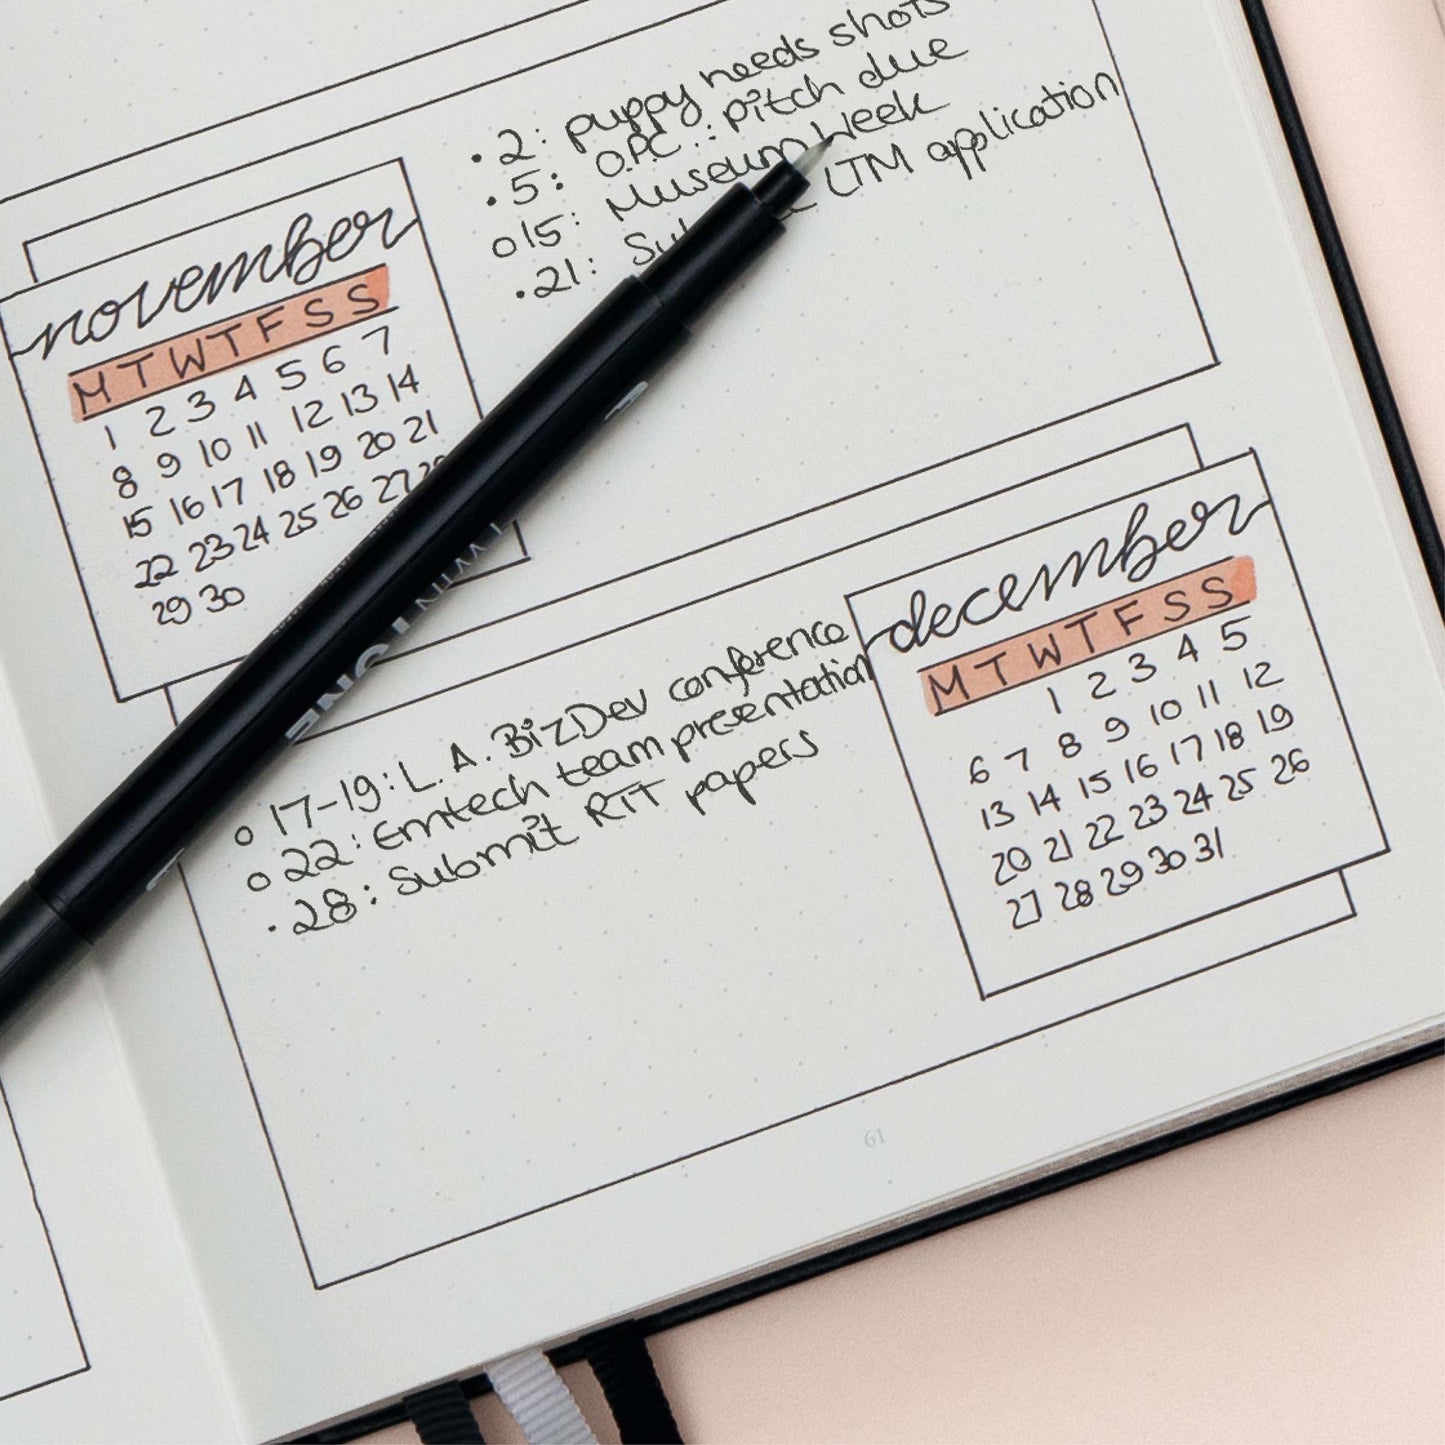 • 2: puppy needs shots
• 5: O.P.C.: pitch due
o 15: Museum Week
• 21: LTM application
november
M T W T F S S
1 2 3 4 5 6 7
8 9 10 11 12 13 14
15 16 17 18 19 20 21
22 23 24 25 26 27 28
29 30
o 17-19: L.A. BizDev conference
o 22: Emtech team presentation
• 28: Submit RIT papers
december
M T W T F S S
1 2 3 4 5
6 7 8 9 10 11 12
13 14 15 16 17 18 19
20 21 22 23 24 25 26
27 28 29 30 31
61